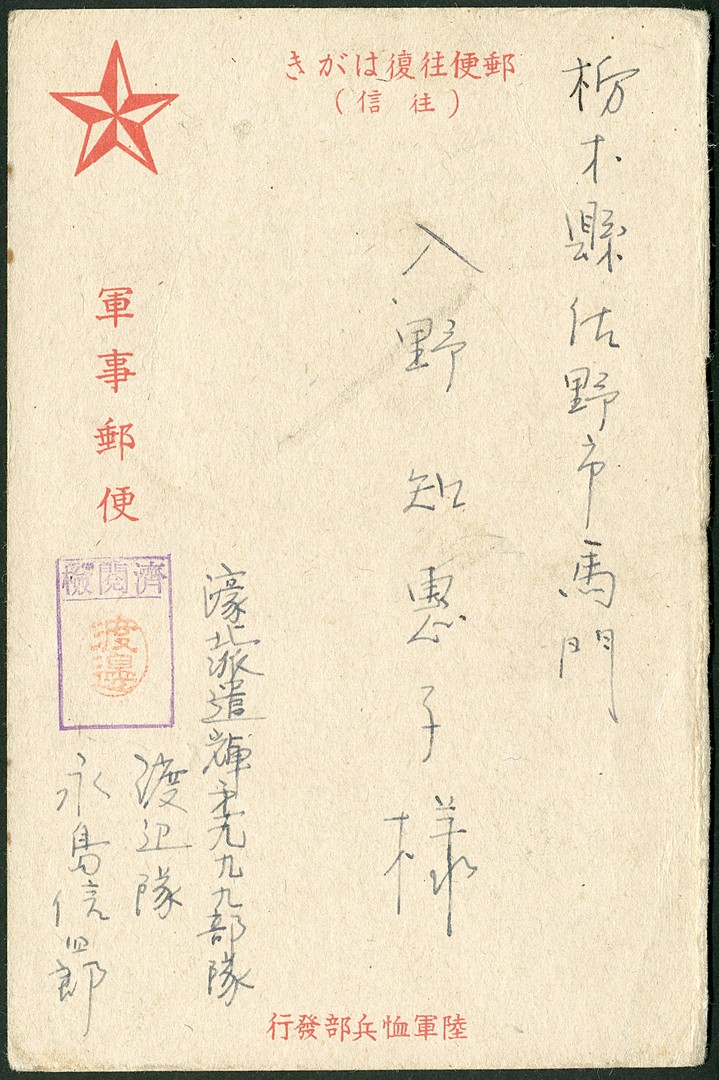 郵便往復はがき
(往信)
栃木縣佐野市馬門
入野知恵子様
軍事郵便
檢閲濟
渡邊
濠北派遣輝第一九九九部隊
渡辺隊
永島信四郎
陸軍恤兵部發行